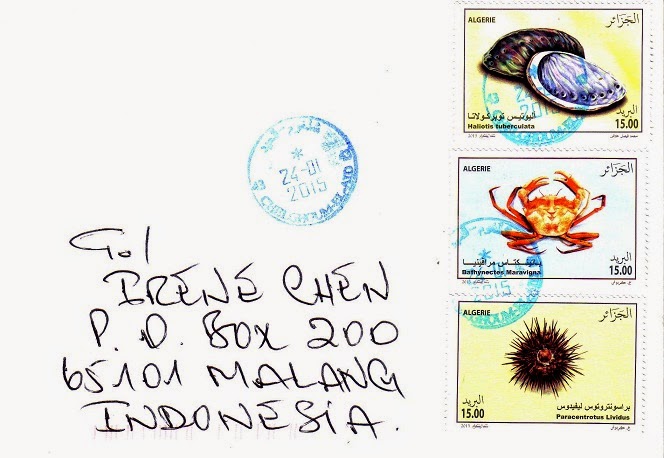 ALGERIE الجزائر
هاليوتيس توبركولاتا
Haliotis tuberculata
البريد
15.00
ALGERIE الجزائر
Bathynectes Maravigna
البريد
15.00
ALGERIE الجزائر
البريد
15.00
براسونتروتوس ليفيدوس
Paracentrotus Lividus
24-01
2015
CHELGHOUM-EL-AID
To/
IRENE CHEN
P.O. Box 200
65101 MALANG
INDONESIA.